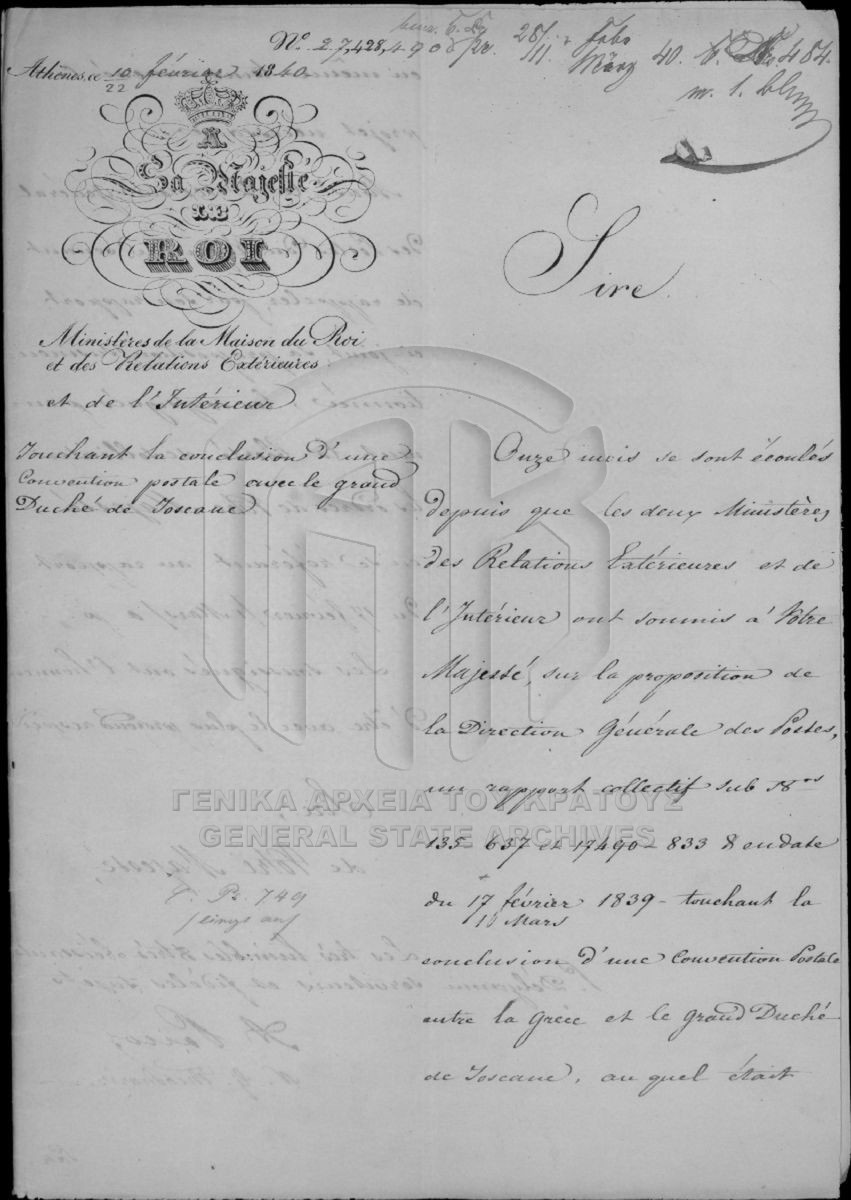 Nº 27,428, 490
28/11 Febr März 40. 484.
Athènes, ce 10/22 février 1840
A
Sa Majesté
LE
ROI
Sire
Ministères de la Maison du Roi
et des Relations Extérieures
et de l'Intérieur
Touchant la conclusion d'une
Convention postale avec le grand
Duché de Toscane
Onze mois se sont écoulés
depuis que les deux Ministères
des Relations Extérieures et de
l'Intérieur ont soumis à Votre
Majesté, sur la proposition de
la Direction Générale des Postes,
un rapport collectif sub Nos
135 637 et 17490-833 & en date
du 17 février 1839 - touchant la
11 Mars
conclusion d'une Convention Postale
entre la Grèce et le grand Duché
de Toscane, au quel était
P. Pr. 749
ΓΕΝΙΚΑ ΑΡΧΕΙΑ ΤΟΥ ΚΡΑΤΟΥΣ
GENERAL STATE ARCHIVES